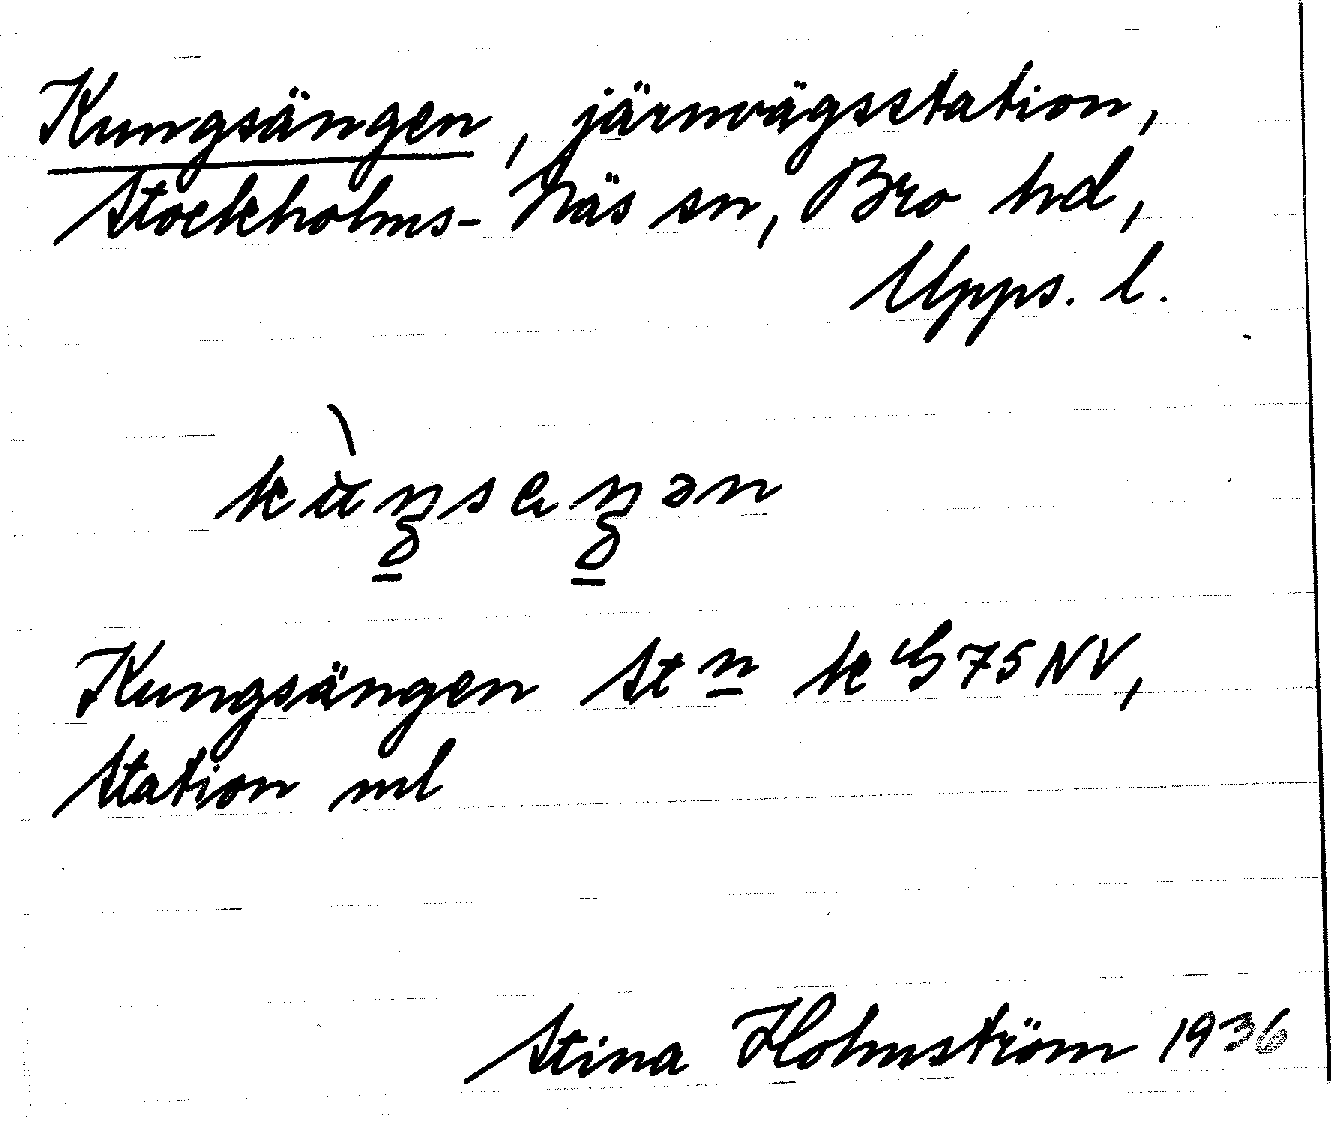 Kungsängen, järnvägsstation,
Stockholms-Näs sn, Bro hd,
Upps. l.
Kungsängen Stn k G 75 NV,
Station ml
Stina Holmström 1936